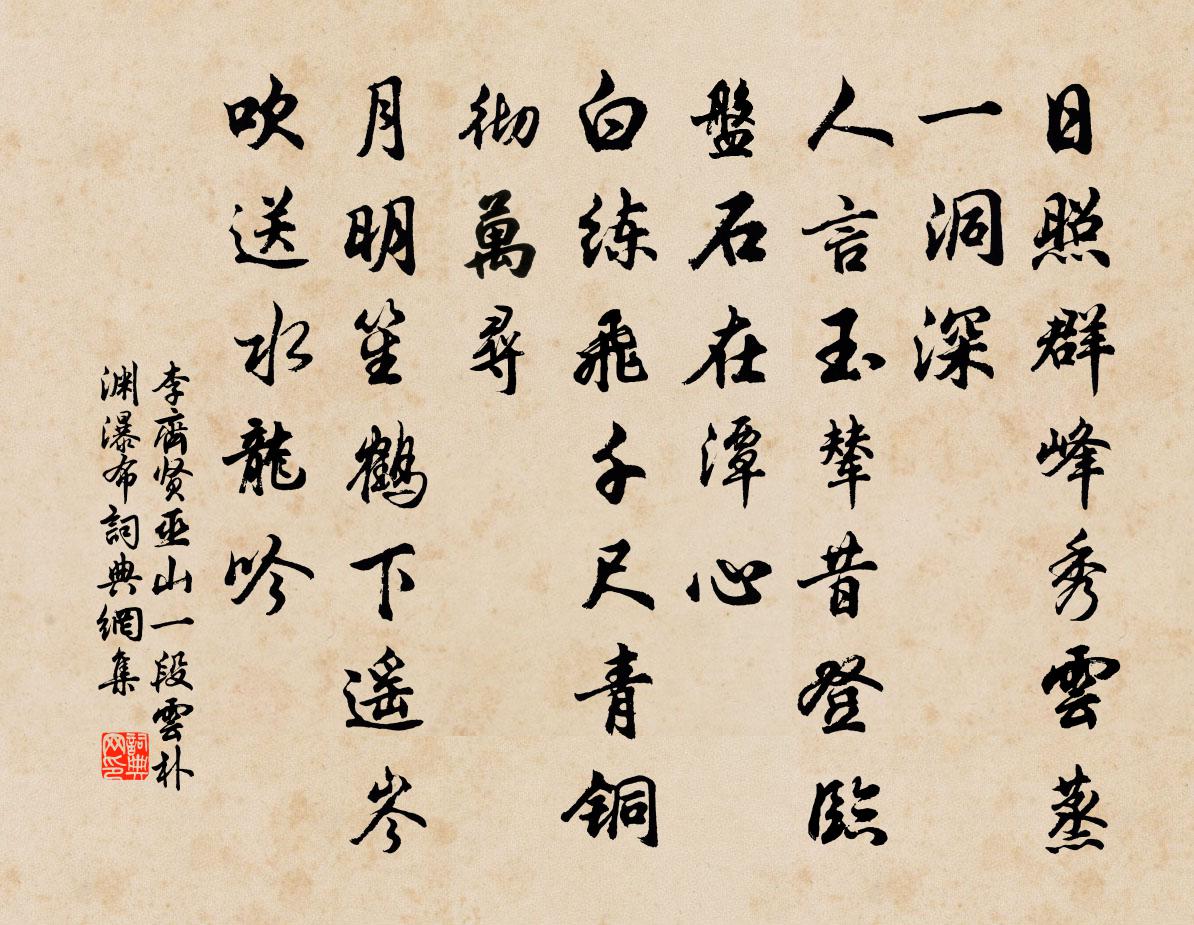 日照群峰秀雲蒸
一洞深
人言玉輦昔登臨
盤石在潭心
白练飛千尺青铜
彻萬尋
月明笙鶴下遥岑
吹送水龍吟
李齊贤巫山一段雲朴
渊瀑布詞典網集
詞典
网印